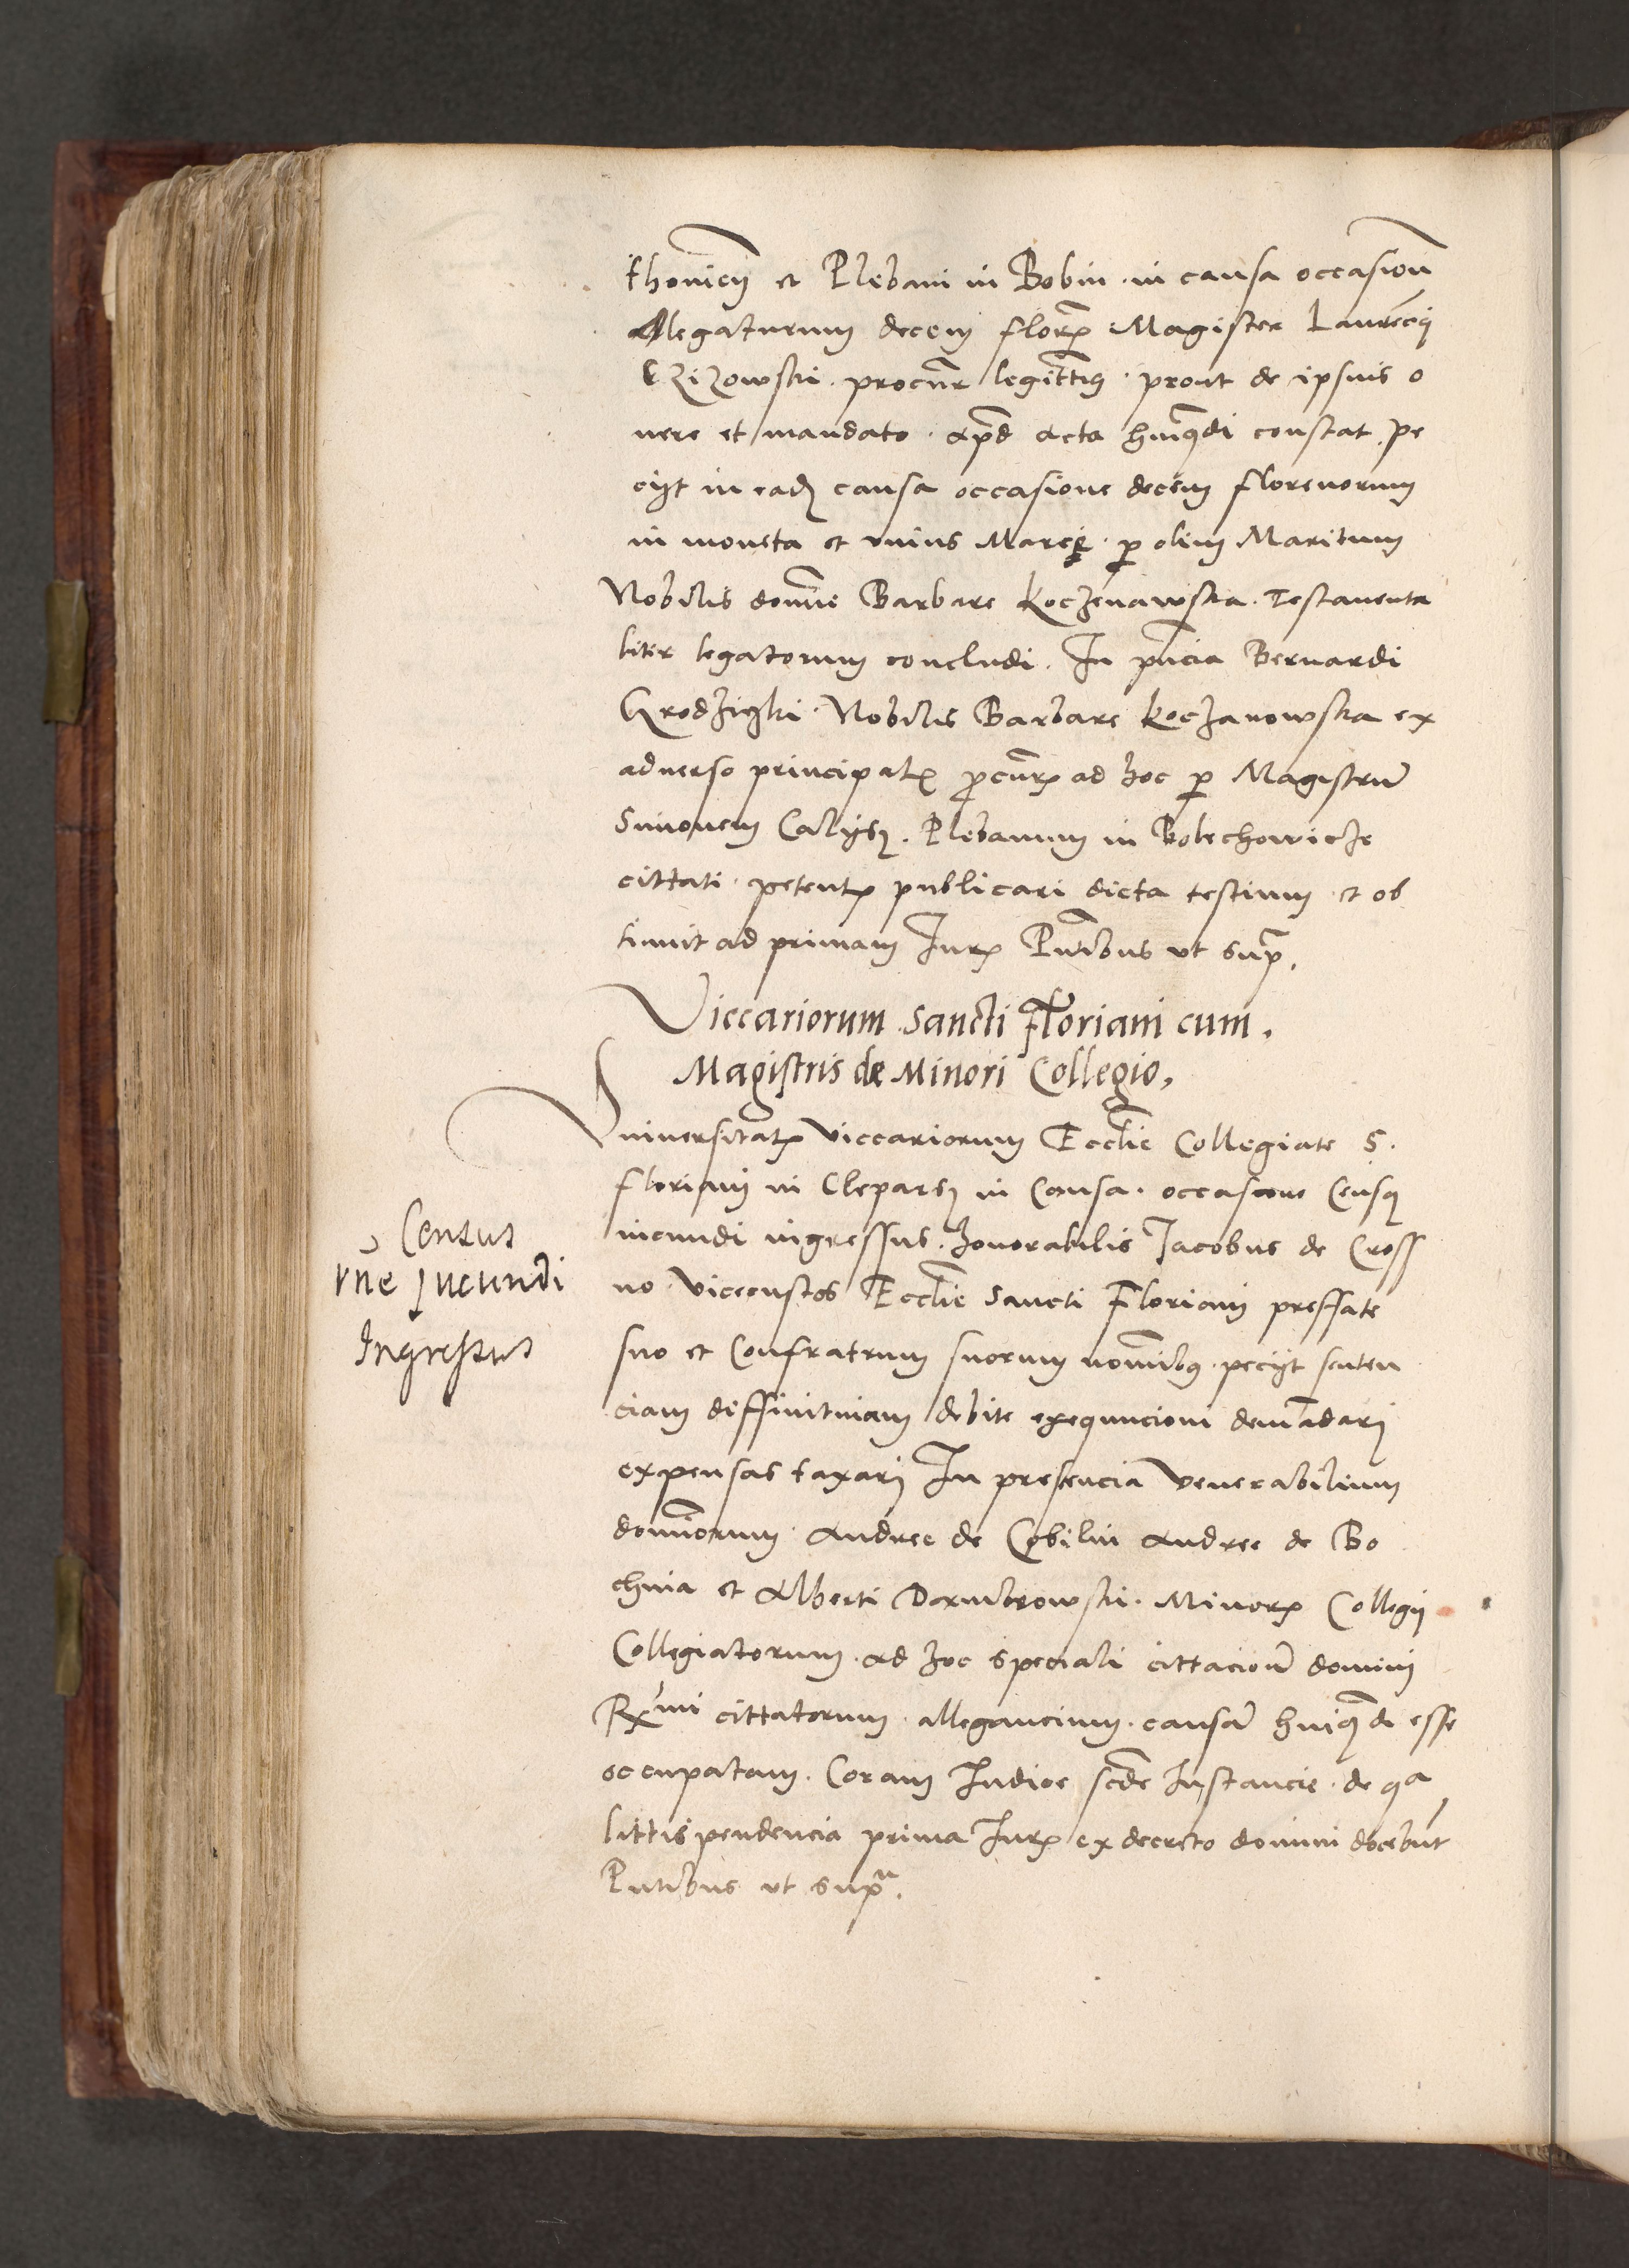 thonicen̄ et Plebani in Bobin · in causa occasion̄
Allegaturum decem floro᷑ Magister Laurēcꝫ
Czizowski · procur̄ legittiꝯ · prout de ipsius o
nere et mandato · apd̄ acta huiꝰmodi constat pe
ciit in eadꝫ causa occasione decem florenorum
in moneta et vnius Marce · ꝑ olim Maritum
Nobilis domine Barbare Koczenawska · Testamenta
liter legatorum concludi · In pn̄cia Bernardi
Grodziczki · Nobilis Barbare Koczanowska ex
aduerso principalꝭ ꝓcur̄ ad hoc ꝑ Magistrū
Simonem Calijsꝫ · Plebanum in Bolechowicze
cittati · petentꝭ publicari dicta testium et ob
tinuit ad primam Jurꝭ Pn̄tibus ut supra.
Viccariorum Sancti Floriani cum ·
Magistris de Minori Collegio,
Vniversitatꝭ viccariorum Ecclīe Collegiate S ·
Floriani in Cleparsꝫ in Causa · occasione Census
iucundi ingressus · honorabilis Jacobus de Cross
no viccecustos Ecclīe Sancti Floriani preffate
suo et Confratrum suorum nomīibꝰ · peciit senten
ciam diffinitiuam debite exequucioni demādari
expensas taxari In presencia Venerabilium
domīorum Andree de Cobilin Andree de Bo
chnia et Alberti Dambrowski · Minorꝭ Collegii
Collegiatorum · ad hoc speciali cittacionē domini
Rx̄mi cittatorum · allegancium · causā huiꝰmodi esse
occupatam · Coram Judice scd̄e Instancie · de qᵃ
littis pendencia prima Jurꝭ ex decreto domini docebūt
Pn̄tibus ut supᵃ.
Census
rn̄e Jucundi
Ingressus